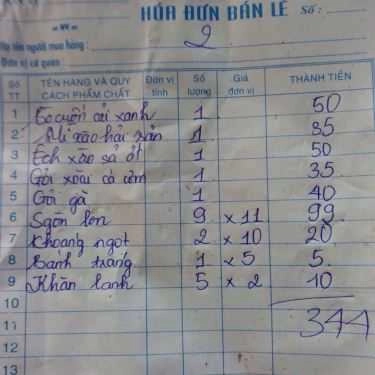 HÓA ĐƠN BÁN LẺ Số :
Họ tên người mua hàng : 2
Đơn vị cơ quan
Số TT TÊN HÀNG VÀ QUY CÁCH PHẨM CHẤT Đơn vị tính Số lượng Giá đơn vị THÀNH TIỀN
1 cuốn cải xanh 1 50
2 Mì xào hải sản 1 35
3 Ếch xào sả ớt 1 50
4 Gỏi xoài cá cơm 1 35
5 Gỏi gà 1 40
6 Sgòn lớn 9 x 11 99
7 Khoang ngọt 2 x 10 20
8 Bánh tráng 1 x 5 5.
9 Khăn lạnh 5 x 2 10
10
11 344
12
13